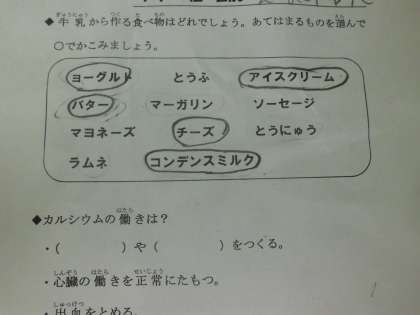 ◆牛乳から作る食べ物はどれでしょう。あてはまるものを選んで
○でかこみましょう。
ヨーグルト とうふ アイスクリーム
バター マーガリン ソーセージ
マヨネーズ チーズ とうにゅう
ラムネ コンデンスミルク
◆カルシウムの働きは?
・( )や( )をつくる。
・心臓の働きを正常にたもつ。
・出血をとめる。